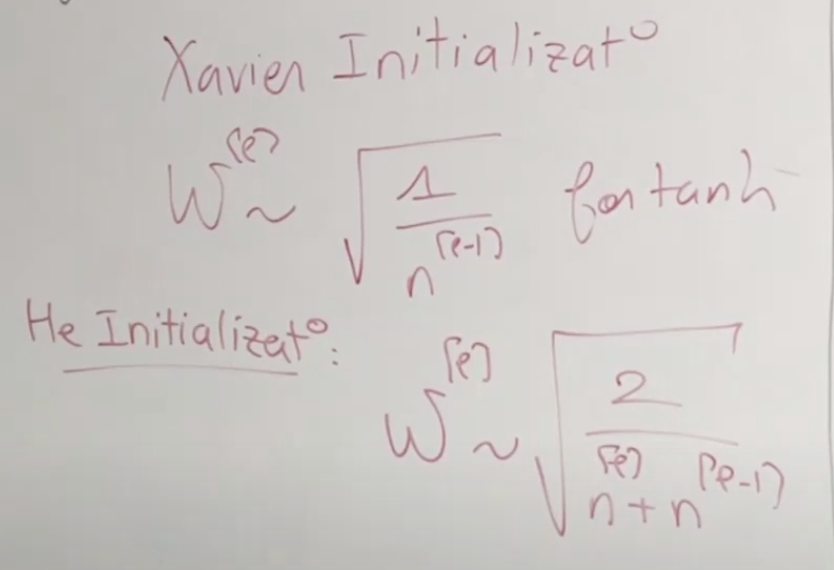 Xavier Initializatº
W^[l] ~ √(1 / n^[l-1]) for tanh
He Initializatº:
W^[l] ~ √(2 / (n^[l] + n^[l-1]))